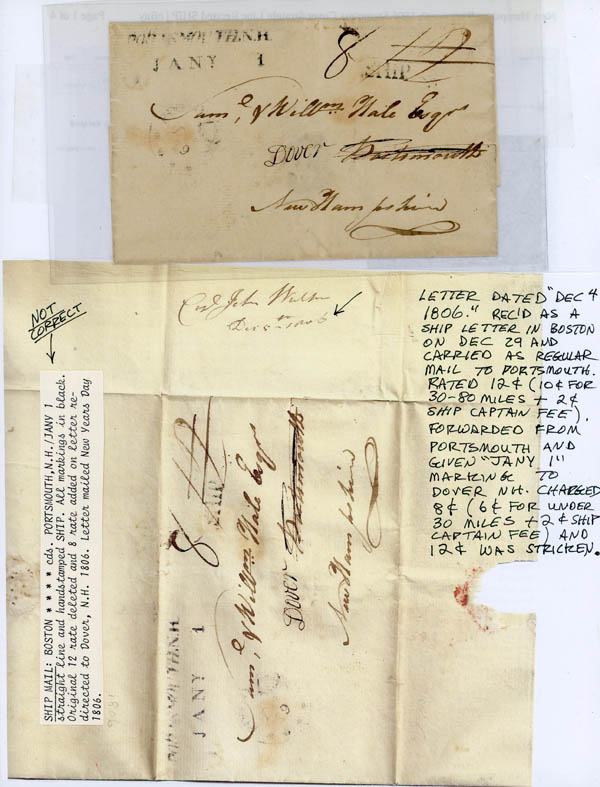 PORTSMOUTH.N.H.
JANY 1
8 12
SHIP
Saml, & Willm Hale Esqrs
Dover Portsmouth
New Hampshire
9
Capt John
Dec 5th 1806
NOT
CORRECT
SHIP MAIL: BOSTON * * * * cds. PORTSMOUTH,N.H./JANY 1
straight line and handstamped SHIP. All markings in black.
Original 12 rate deleted and 8 rate added on letter re-
directed to Dover, N.H. 1806. Letter mailed New Years Day
1806.
LETTER DATED "DEC 4
1806." REC'D AS A
SHIP LETTER IN BOSTON
ON DEC 29 AND
CARRIED AS REGULAR
MAIL TO PORTSMOUTH.
RATED 12¢ (10¢ FOR
30-80 MILES + 2¢
SHIP CAPTAIN FEE).
FORWARDED FROM
PORTSMOUTH AND
GIVEN "JANY 1"
MARKING TO
DOVER NH. CHARGED
8¢ (6¢ FOR UNDER
30 MILES + 2¢ SHIP
CAPTAIN FEE) AND
12¢ WAS STRICKEN.
PORTSMOUTH.N.H
JANY 1
8 12
SHIP
Saml, & Willm Hale Esqrs
Dover Portsmouth
New Hampshire
9